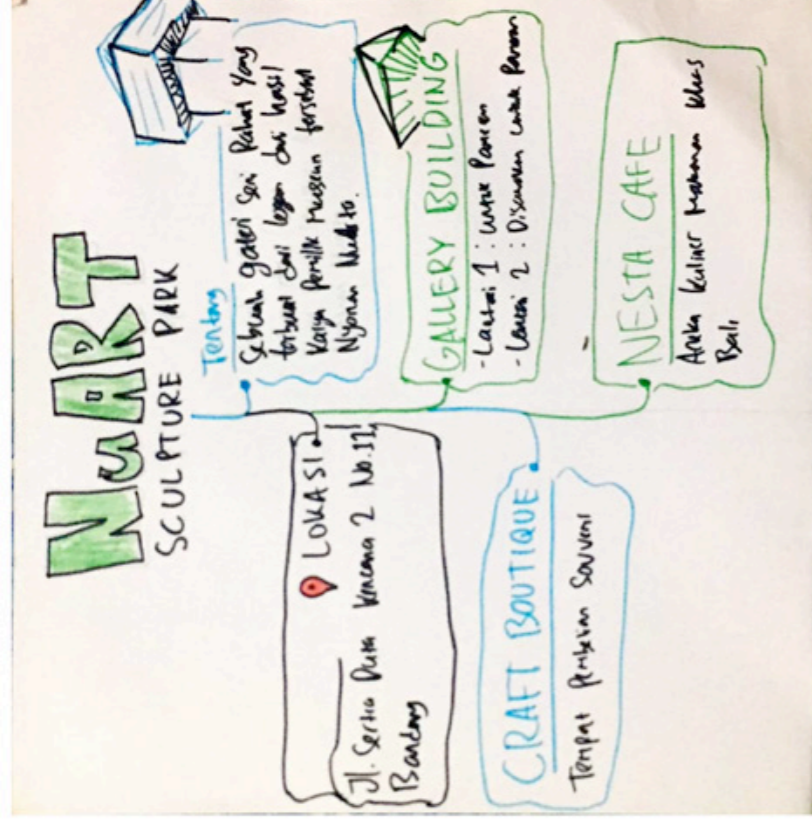 NuART
SCULPTURE PARK
Tentang
Sebuah galeri seni Pahat Yang
terbuat dari logam dari hasil
Karya Pemilik Museum tersebut
Nyoman Nuarta.
LOKASI
Jl. Setra Duta Kencana 2 No.11,
Bandung
GALLERY BUILDING
- Lantai 1 : Untuk Pameran
- Lantai 2 : Disewakan untuk Pameran
CRAFT BOUTIQUE
Tempat Pembelian Souvenir
NESTA CAFE
Aneka Kuliner Makanan khas
Bali